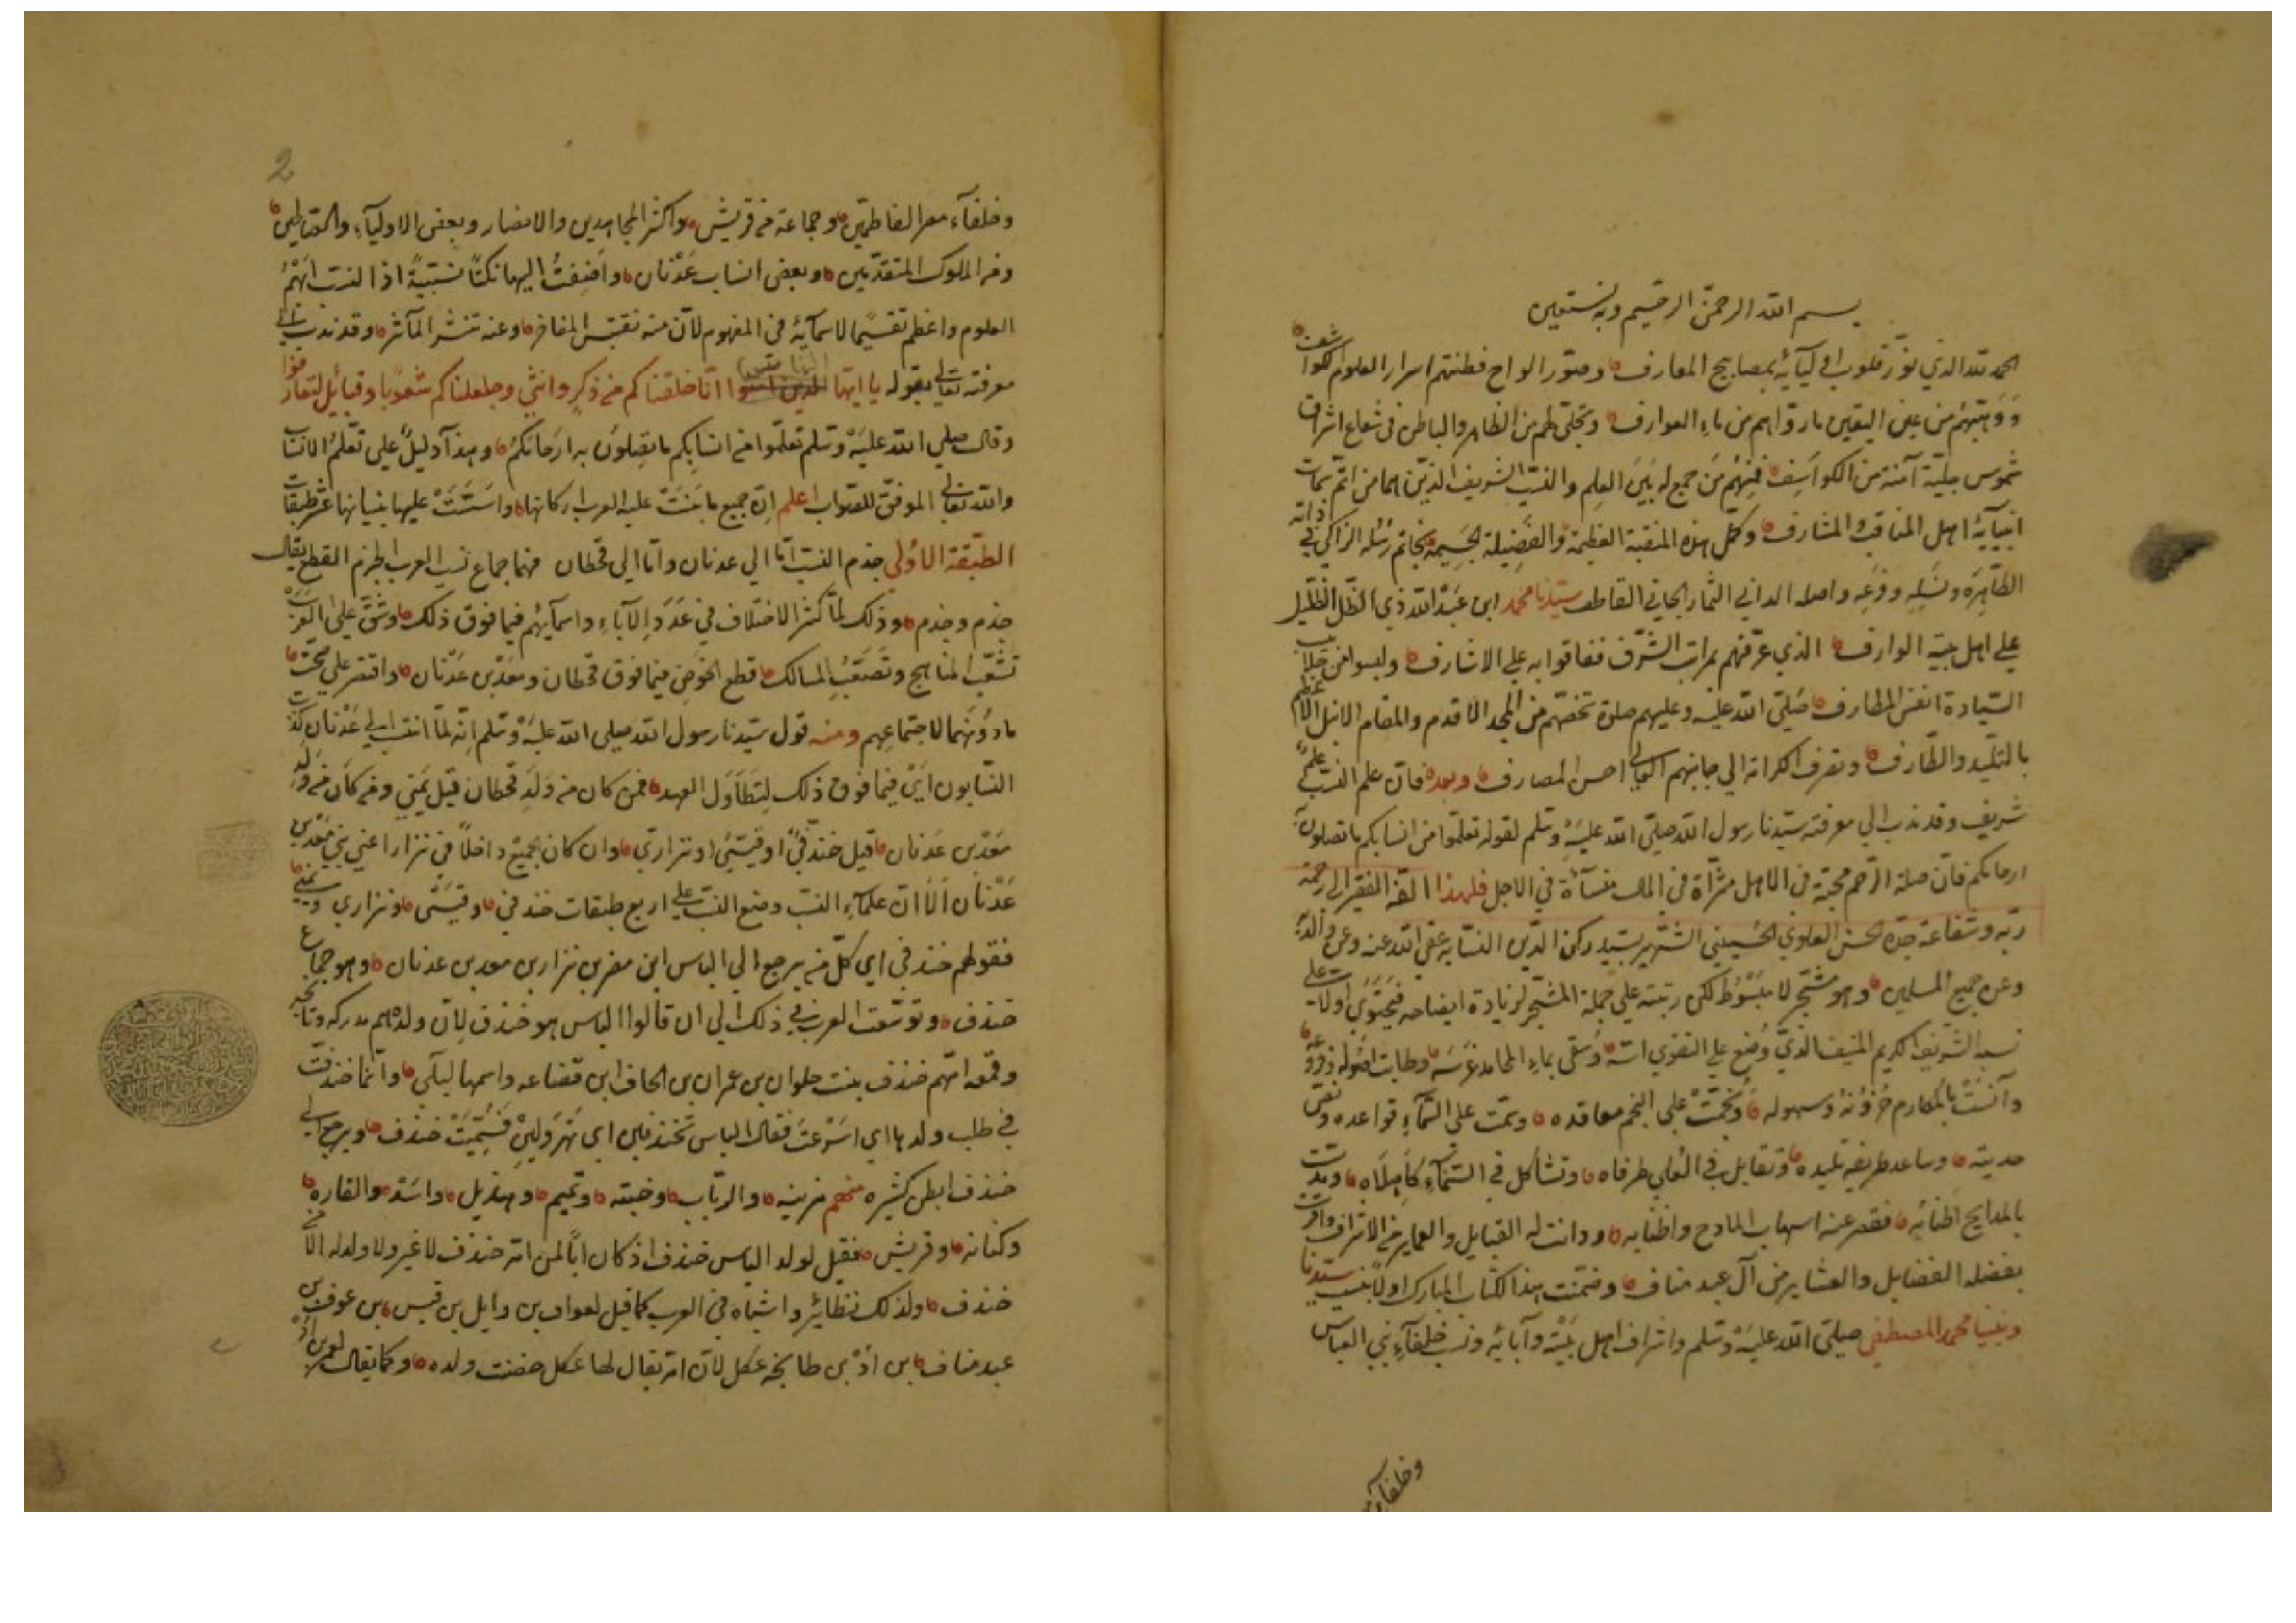 بسم الله الرحمن الرحيم وبه نستعين
الحمد لله الذي نوّر قلوب اوليآئه بمصابيح المعارف وصوّر الواح فطنتهم اسرار العلوم كواشف
ووهبهم من عين اليقين ما روّاهم من ماء العوارف وتجلّى لهم من الظاهر والباطن في شعاع اشراق
شموس جليّة آمنة من الكواسف فمنهم من جمع له بين العلم والنسب الشريف الذين هما من اتمّ سمات
انبيآئه اهل المناقب والمشارف وكمل هذه المنقبة العظيمة والفضيلة الجسيمة بخاتم رسله الزاكي في ذاته
الطاهرة ونسله وفرعه واصله الداني الثمار الجاني القاطف سيّدنا محمد ابن عبد الله ذي الظل الظليل
على اهل بيته الوارف الذي عرّفهم مراتب الشرف ففاقوا به على الاشارف ولبسوا من جلابيب
السيادة انفس المطارف صلى الله عليه وعليهم صلوة تخصّهم من المجد الاقدم والمقام الانبل الاعظم
بالتليد والطارف وتصرف اكرامه الى جانبهم العالي احسن المصارف وبعد فان علم النسب علم
شريف وقد ندب الى معرفته سيدنا رسول الله صلى الله عليه وسلم لقوله تعلموا من انسابكم ما تصلون به
ارحامكم فان صلة الرحم محبة في الاهل مثراة في المال منسأة في الاجل فلهذا الفه الفقير الى رحمة
ربّه وشفاعة جدّه الحسن العلوي الحسيني الشهير بسيد ركن الدين النسّابة عفى الله عنه وعن والديه
وعن جميع المسلمين وهو مشجّر لا مبسوط لكن رتبته على جملة المشجّر لزيادة ايضاحه فيحتوي اولا على
نسبه الشريف الكريم المنيف الذي وضع على التقوى اسّه وسقى بماء المحامد غرسه وطابت اصوله وفروعه
وآنست بالمكارم حزونه وسهوله ونجمت على النجم معاقده وسمت على السمآء قواعده
حديثه وساعد طريفه تليده وتقابل في العلى طرفاه وتشاكل في السنآء كاهلاه
بالمدايح اطنابه فقصر عنه اسهاب المادح واطنابه ودانت له القبايل والعماير من الاشراف واقرت
بفضله الفضايل والعشاير من آل عبد مناف وضمنت هذا الكتاب المبارك اولا نسب سيدنا
ونبينا محمد المصطفى صلى الله عليه وسلم واشراف اهل بيته وآبائه ونسب خلفآء بني العباس
وخلفآء
2
وخلفآء مصر الفاطميّين وجماعة من قريش واكثر المجاهدين والانصار وبعض الاوليآء والسلاطين
ومن الملوك المتقدّمين وبعض انساب عدنان واضفت اليها نكتا نسبيّة اذ النسب اهمّ
العلوم واعظم تقسيما لاسمآئه في المفهوم لان منه تقتبس المفاخر وعنه تنشر المآثر وقد ندب الى
معرفته تعالى بقوله يا ايها الناس انا خلقناكم من ذكر وانثى وجعلناكم شعوبا وقبائل لتعارفوا
وقال صلى الله عليه وسلم تعلموا من انسابكم ما تصلون به ارحامكم وهذا دليل على تعلّم الانساب
والله تعالى الموفق للصواب اعلم ان جميع ما بنت عليه العرب اركانها واسست عليها بنيانها عشر طبقات
الطبقة الاولى جذم النسب امّا الى عدنان وامّا الى قحطان فهما جماع نسب العرب الجذم القطع يقال
جذم وجذم وذلك لما كثر الاختلاف في عدد الآباء واسمآئهم فيما فوق ذلك وشق على العرب
تشعّب المناهج وتصعّب المسالك قطع الخوض فيما فوق قحطان ومعد بن عدنان واقتصر على
ما دونهما لاجتماعهم ومنه قول سيدنا رسول الله صلى الله عليه وسلم انه لما انتسب الى عدنان كذب
النسّابون اي فيما فوق ذلك لتطاول العهد فمن كان من ولد قحطان قيل يمني ومن كان من ولد
معد بن عدنان قيل خندفيّ او قيسيّ او نزاريّ وان كان الجميع داخلا في نزار اعني بني معد بن
عدنان الا ان علمآء النسب وضع النسب على اربع طبقات خندفي وقيسي ونزاري ويمني
فقولهم خندفي اي كل من يرجع الى الياس ابن مضر بن نزار بن معد بن عدنان وهو جماع
خندف وتوسّعت العرب في ذلك الى ان قالوا الياس هو خندف لان ولده هم مدركه وطابخه
وقمعه امّهم خندف بنت حلوان بن عمران بن الحاف ابن قضاعه واسمها ليلى وانّما خندفت
في طلب ولدها اي اسرعت فقال الياس تخندفين اي تهرولين فسمّيت خندف ويرجع الى
خندف ابطن كثيره منهم مزينه والرباب وضبّه وتميم وهذيل واسد والقاره
وكنانه وقريش فقيل لولد الياس خندف اذ كان ابا لمن امّه خندف لا غير ولا ولد له الا من
خندف ولذلك نظائر واشباه في العرب كما قيل لعوف بن وايل بن قيس بن عوف بن
عبد مناف بن ادّ بن طابخه عكل لان امة يقال لها عكل حضنت ولده وكما يقال لعمرو بن ادّ